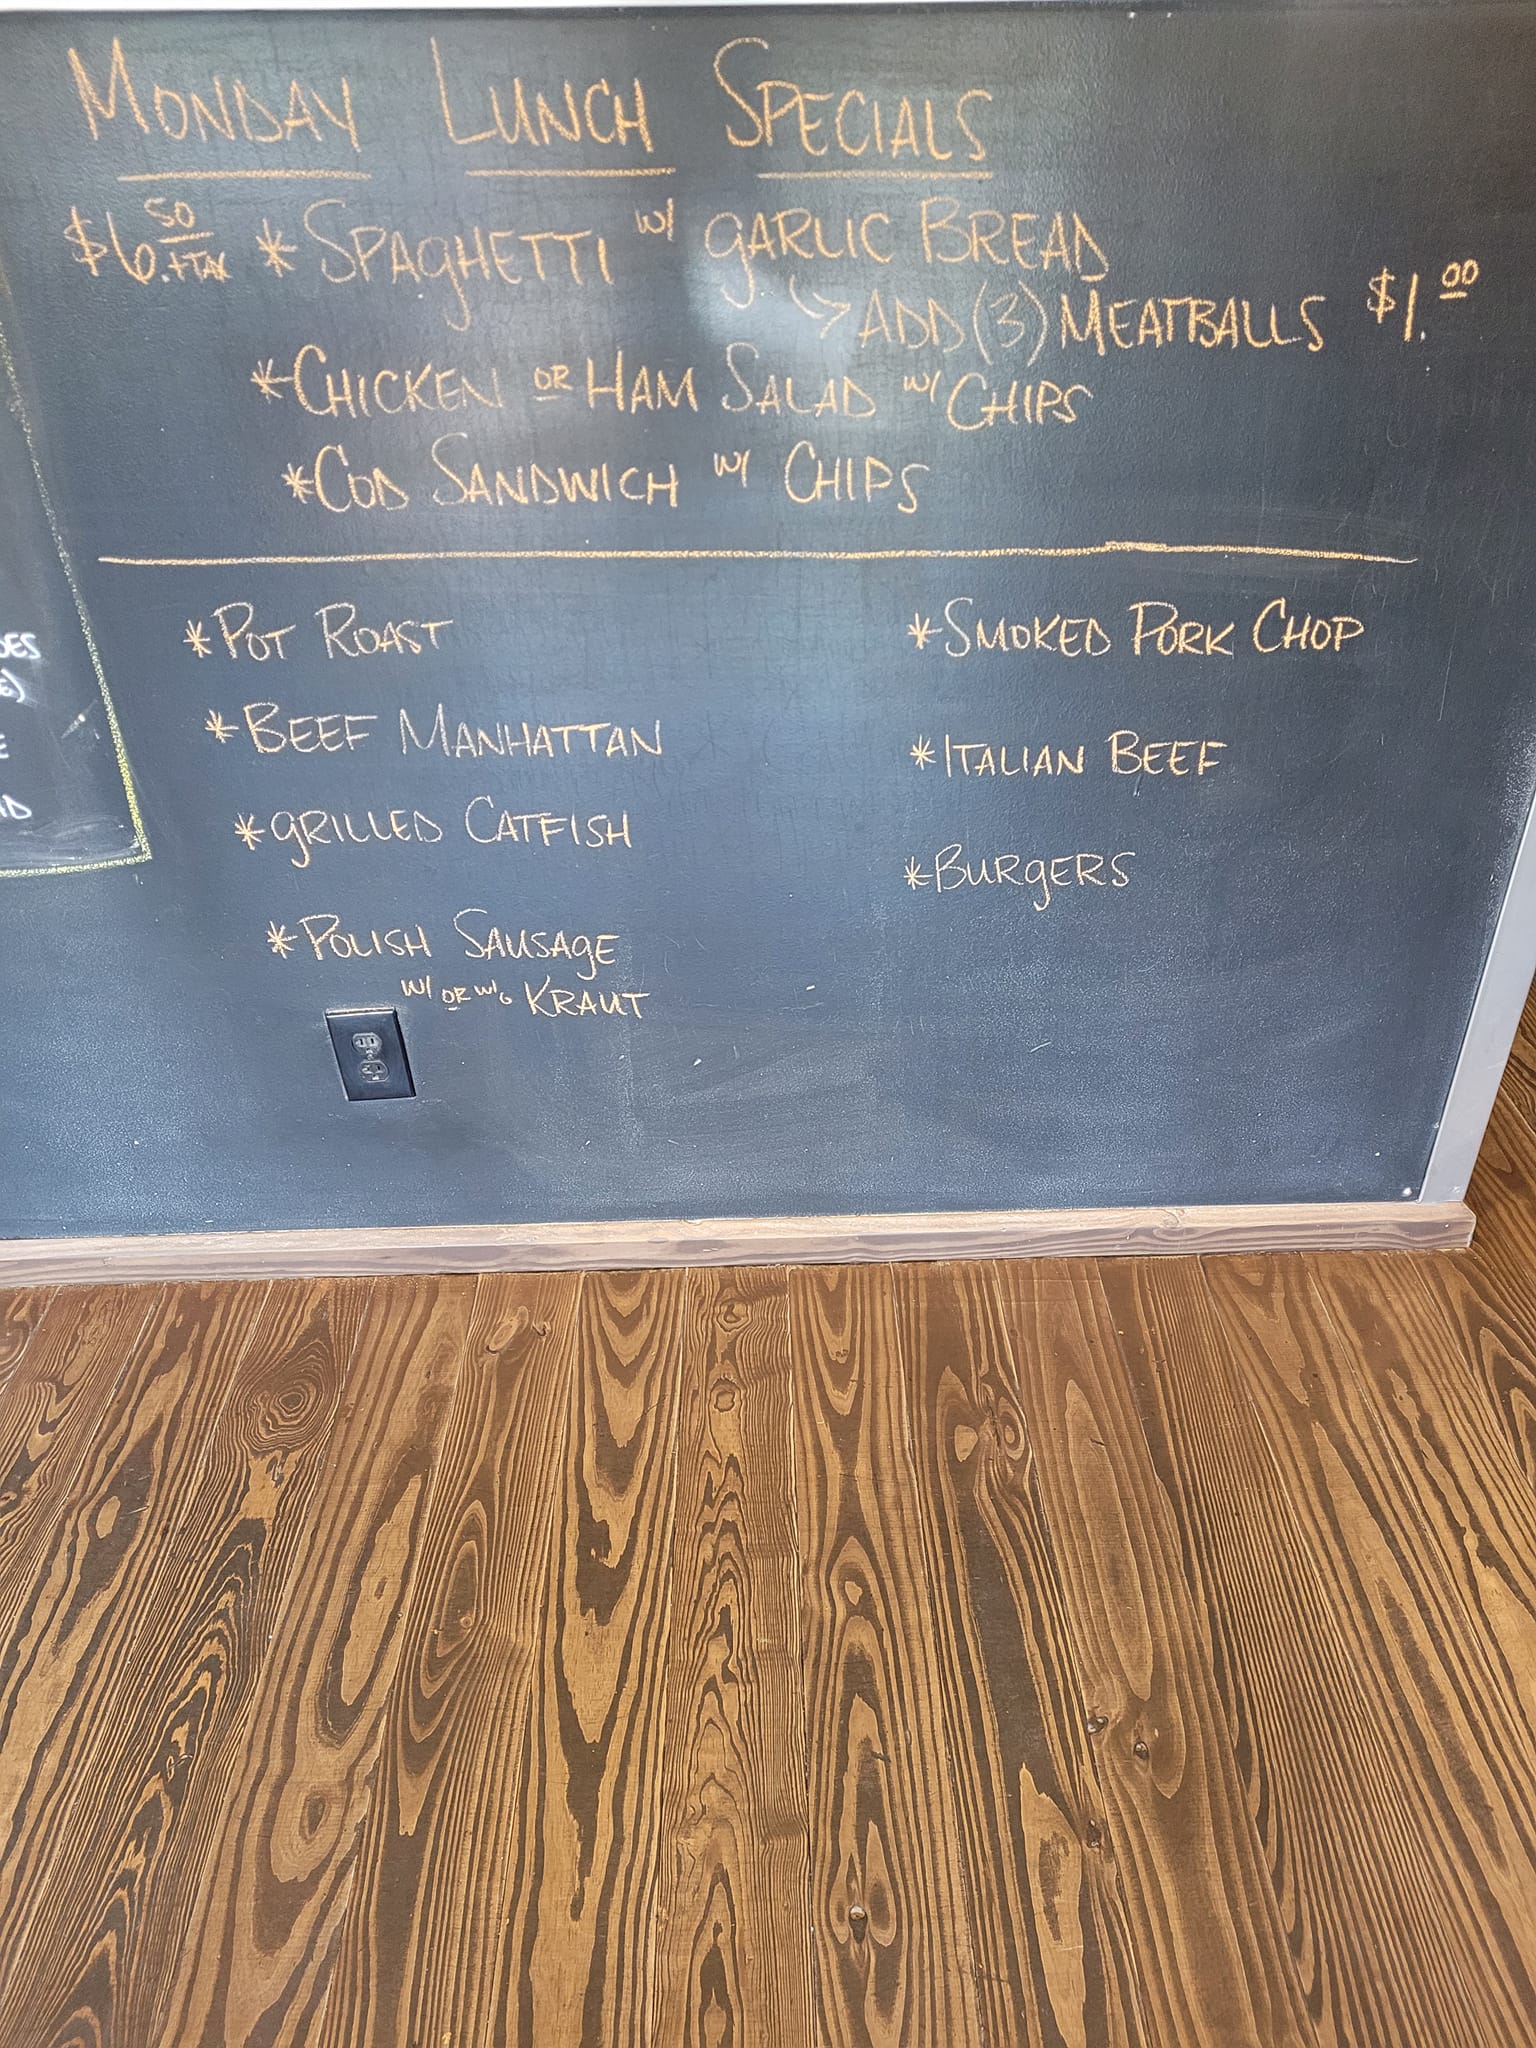 MONDAY LUNCH SPECIALS
$6.50 +TAX * SPAGHETTI w/ GARLIC BREAD
↳ ADD (3) MEATBALLS $1.00
* CHICKEN OR HAM SALAD w/ CHIPS
* COD SANDWICH w/ CHIPS
* POT ROAST
* BEEF MANHATTAN
* GRILLED CATFISH
* POLISH SAUSAGE
w/ OR w/o KRAUT
* SMOKED PORK CHOP
* ITALIAN BEEF
* BURGERS